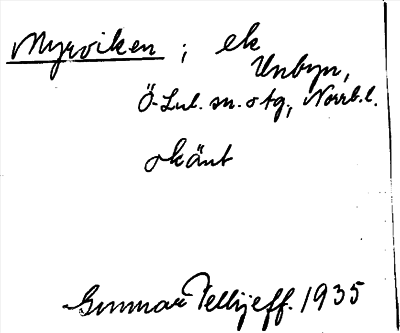 Myrviken ; ek
Unbyn,
Ö-Lul. sn. o tg, Norrb.l.
okänt
Gunnar Pellijeff. 1935